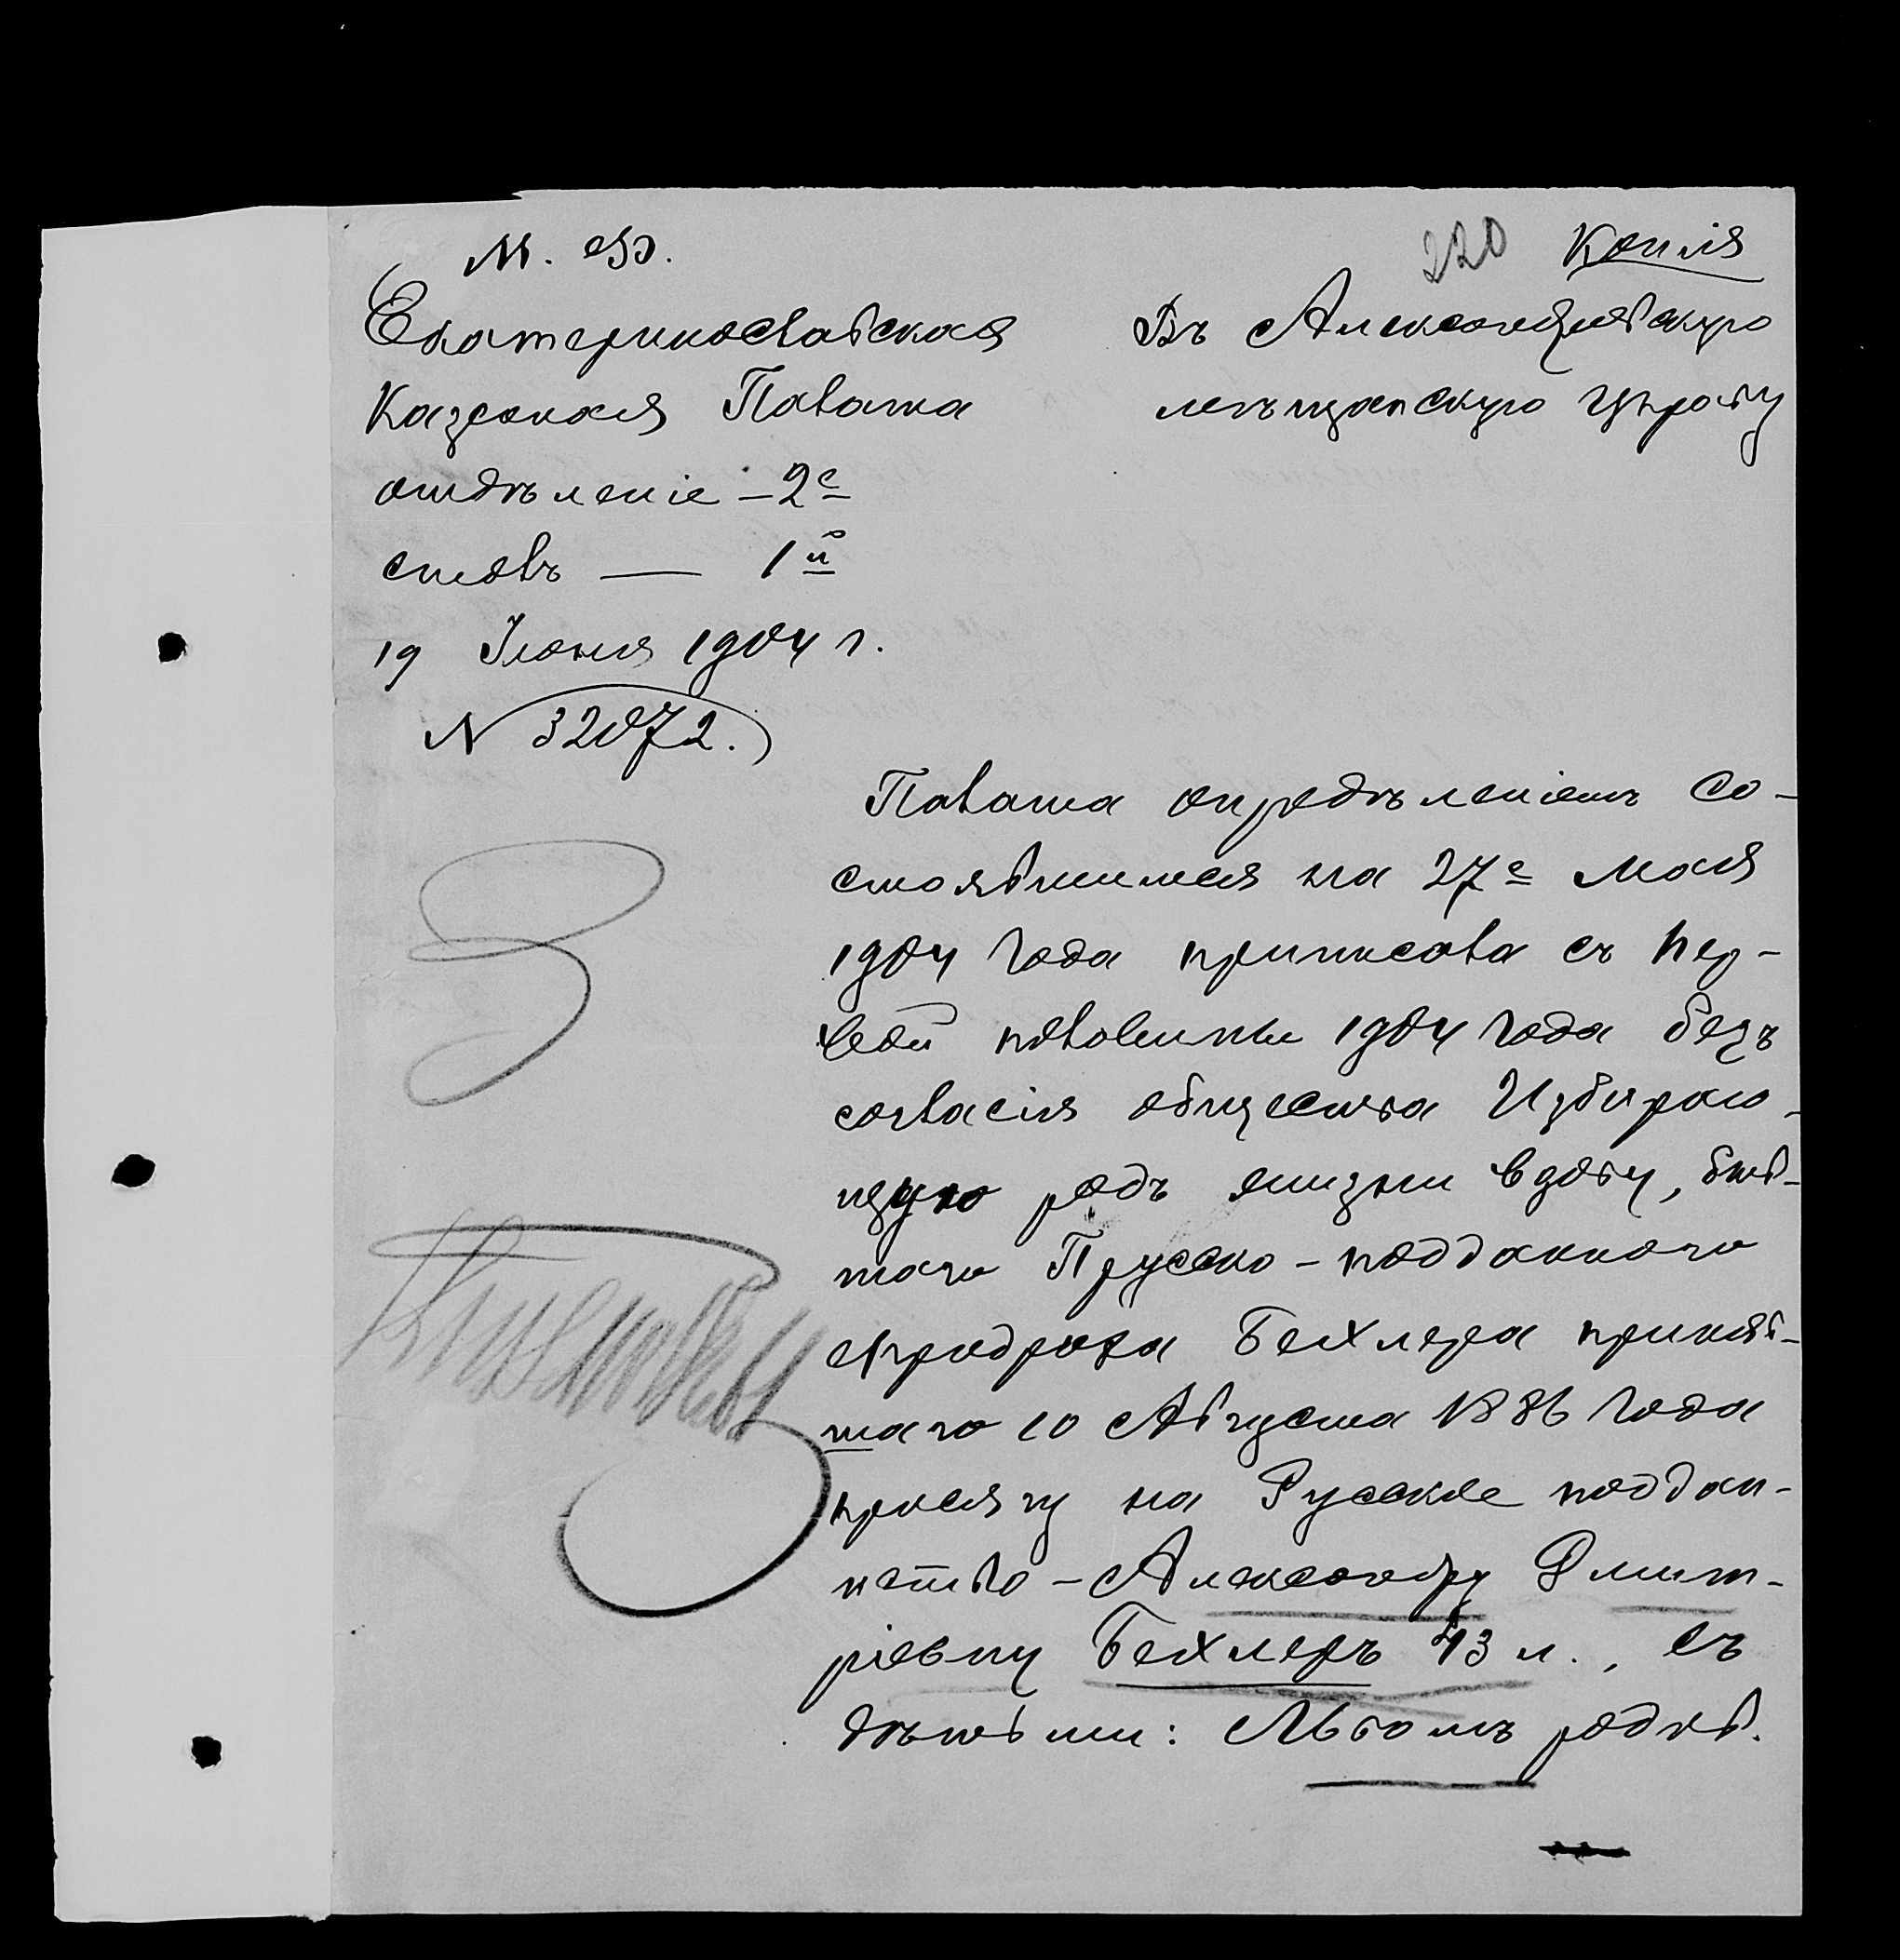 М. Ф.
220 Копія
Екатеринославская
Казенная Палата
отдѣленіе – 2е
столъ — 1й
19 Іюня 1904 г.
N 32072.
Въ Александровскую
мѣщанскую Управу
Палата опредѣленіемъ со-
стоявшимся на 27е Мая
1904 года приписала съ пер-
вой половины 1904 года безъ
согласія общества Избираю-
щую родъ жизни вдову, быв-
шаго Прусско-подданнаго
Фридриха Бехлера приняв-
шаго 10 Августа 1886 года
присягу на Русское поддан-
ство – Александру Дмит-
ріевну Бехлеръ 43 л., съ
дѣтьми: Львомъ родив.